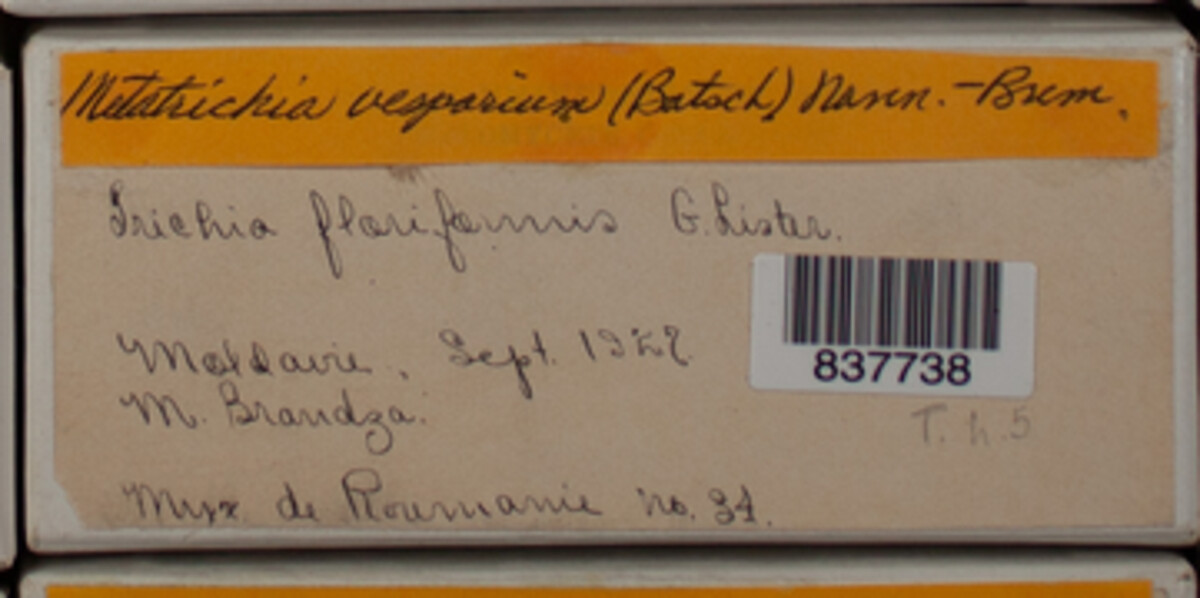 Metatrichia vesparium (Batsch) Nann.-Brem.
Trichia floriformis G. Lister.
Moldavie, Sept. 1927.
M. Brandza.
837738
T. h. 5
Myx. de Roumanie no. 34.